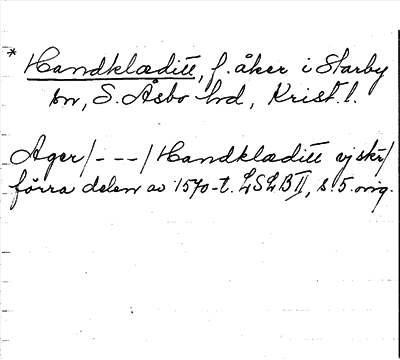 * Handklæditt, f. åker i Starby
sn, S. Åsbo hd, Krist. l.
Ager / - - - / Handklæditt vj skr/
förra delen av 1570-t. LSLB II, s. 5. orig.